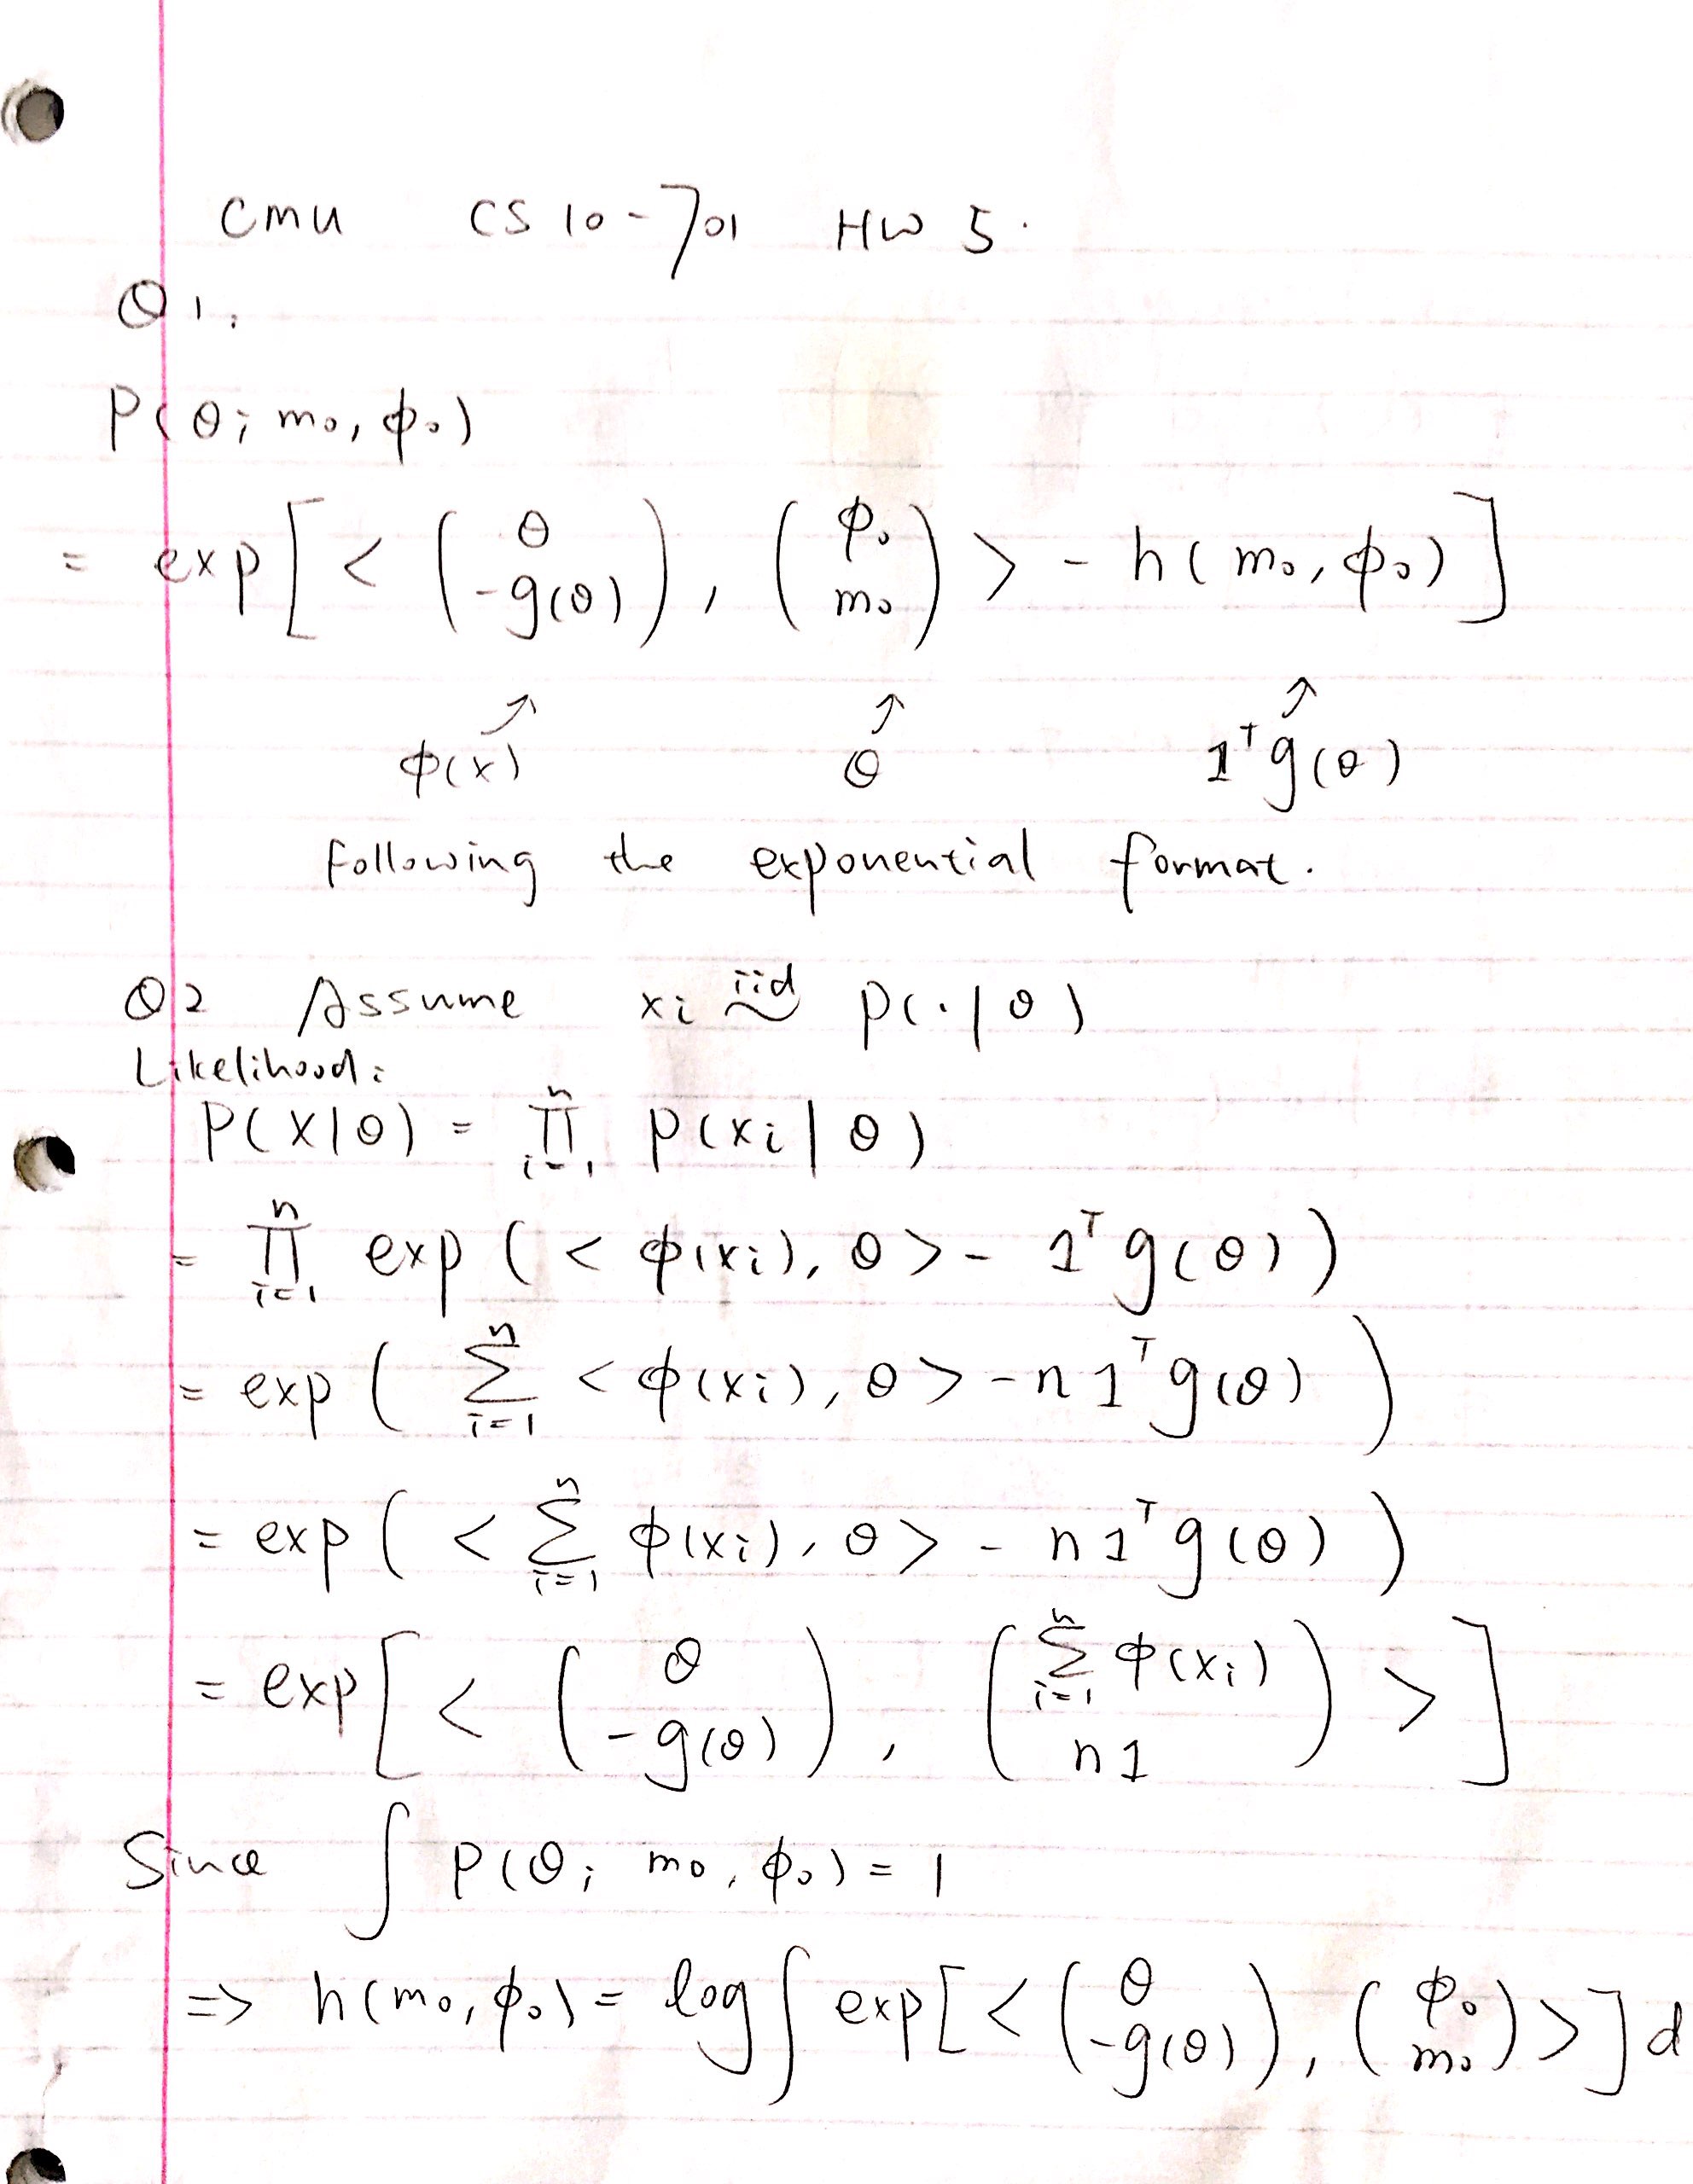 CMU CS 10-701 HW 5.
Q1.
P(θ; m₀, φ₀)
= exp[ < ( θ -g(θ) ), ( φ₀ m₀ ) > - h( m₀, φ₀) ]
φ(x) θ 1ᵀg(θ)
Following the exponential format.
Q2 Assume xi iid ~ p(·|θ)
Likelihood:
P(X|θ) = ∏ⁿᵢ₌₁ p(xi|θ)
= ∏ⁿᵢ₌₁ exp ( < φ(xi), θ > - 1ᵀg(θ) )
= exp ( Σⁿᵢ₌₁ < φ(xi), θ > - n1ᵀg(θ) )
= exp ( < Σⁿᵢ₌₁ φ(xi), θ > - n1ᵀg(θ) )
= exp[ < ( θ -g(θ) ), ( Σⁿᵢ₌₁ φ(xi) n1 ) > ]
Since ∫ P(θ; m₀, φ₀) = 1
=> h(m₀, φ₀) = log ∫ exp[ < ( θ -g(θ) ), ( φ₀ m₀ ) > ] d